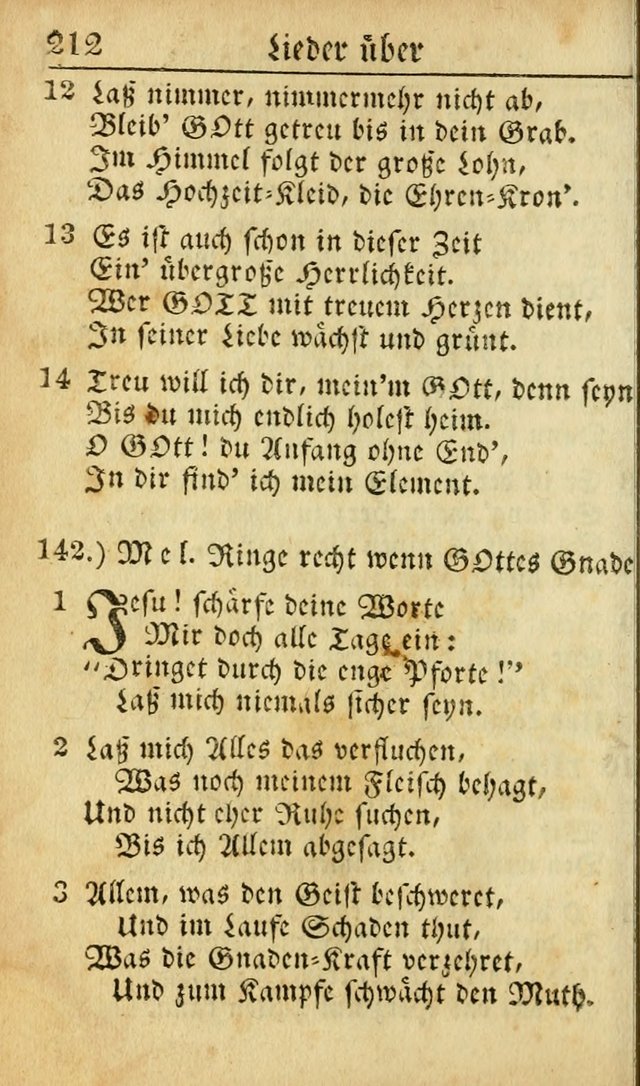 212 Lieder über
12 Laß nimmer, nimmermehr nicht ab,
Bleib' GOtt getreu bis in dein Grab.
Im Himmel folgt der große Lohn,
Das Hochzeit-Kleid, die Ehren-Kron'.
13 Es ist auch schon in dieser Zeit
Ein' übergroße Herrlichkeit.
Wer GOTT mit treuem Herzen dient,
In seiner Liebe wächst und grünt.
14 Treu will ich dir, mein'm GOtt, denn seyn
Bis du mich endlich holest heim.
O GOtt! du Anfang ohne End',
In dir find' ich mein Element.
142.) Mel. Ringe recht wenn GOttes Gnade
1 Jesu! schärfe deine Worte
Mir doch alle Tage ein:
"Dringet durch die enge Pforte!"
Laß mich niemals sicher seyn.
2 Laß mich Alles das verfluchen,
Was noch meinem Fleisch behagt,
Und nicht eher Ruhe suchen,
Bis ich Allem abgesagt.
3 Allem, was den Geist beschweret,
Und im Laufe Schaden thut,
Was die Gnaden-Kraft verzehret,
Und zum Kampfe schwächt den Muth.